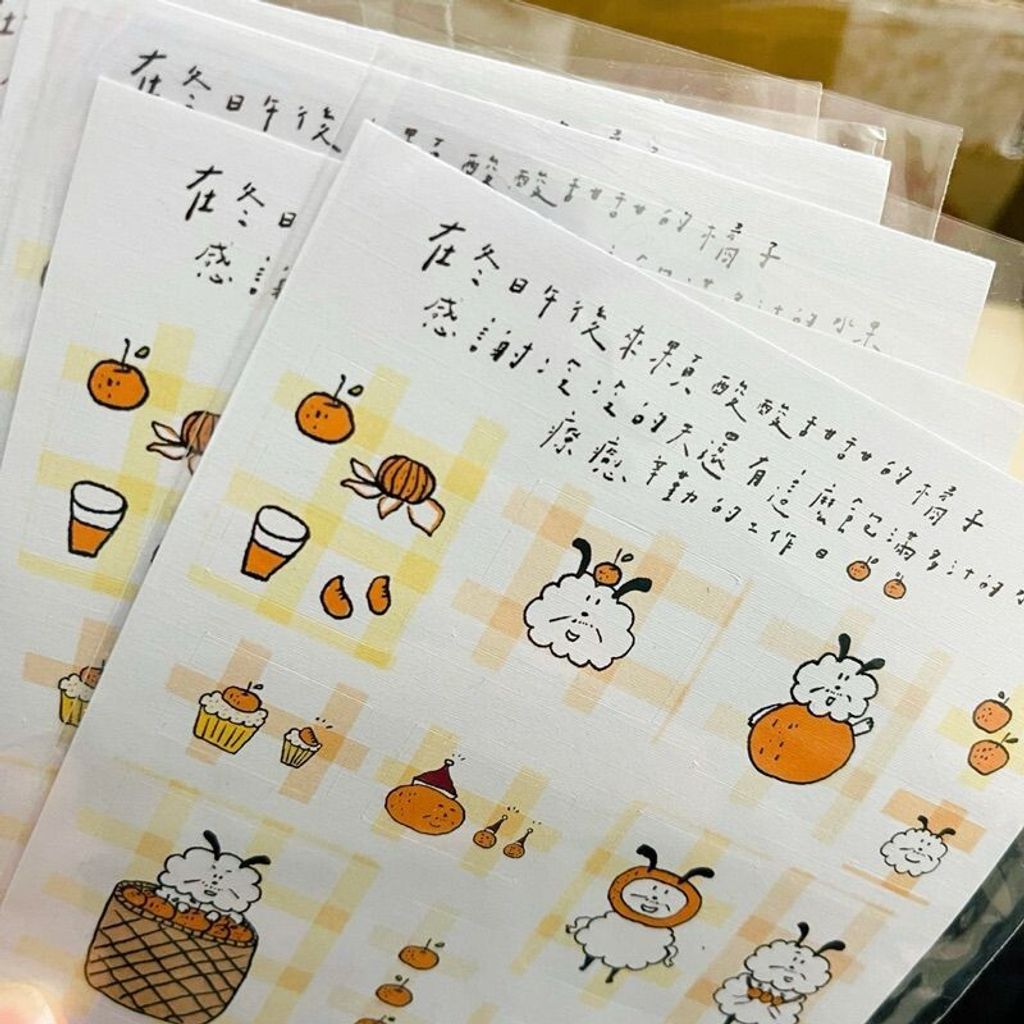 在冬日午後
顆酸酸甜甜的橘子
多汁的水果
在冬日
感謝
在冬日午後來顆酸酸甜甜的橘子
感謝冷冷的天還有這麼飽滿多汁的
療癒辛勤的工作日